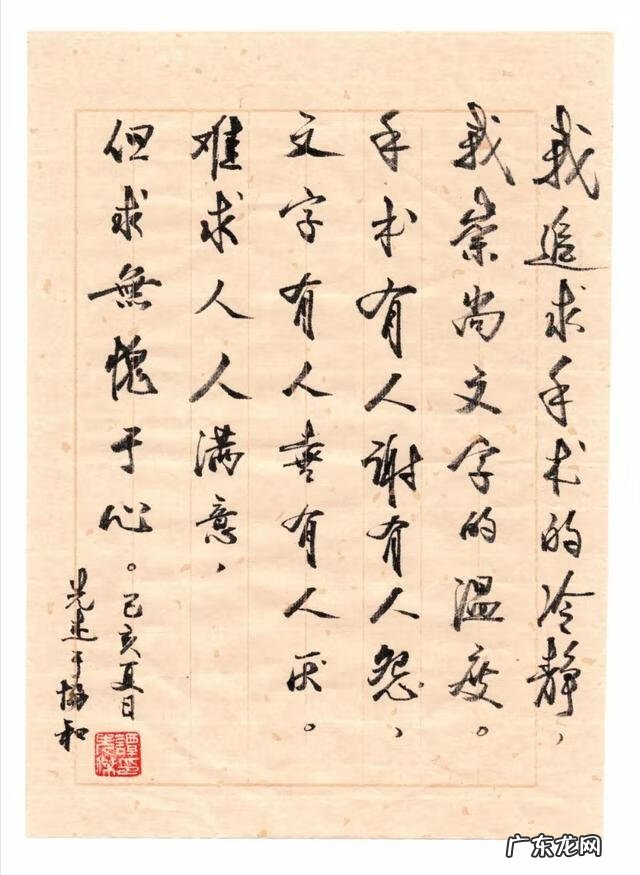 我追求手术的冷静,
我崇尚文字的温度。
手术有人谢有人怨、
文字有人喜有人厌。
难求人人满意,
但求無愧于心。
己亥夏日
先进于协和
譚先傑印
广东龙网